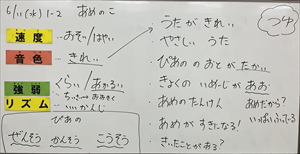 6/11(水) 1-2 あめのこ
速度 …おそい/はやい
音色 …きれい
強弱 くらい/あかるい
ちいさい おおきく
リズム …いいかんじ
ぴあの
ぜんそう かんそう こうそう
・うたが きれい
やさしい うた
・ぴあの の おと が たかい
・きょくの いめーじが あお
・あめの たんけん あめだから?
いっぱい ふってる
・あめが すきになる!
・きいたことが ある?